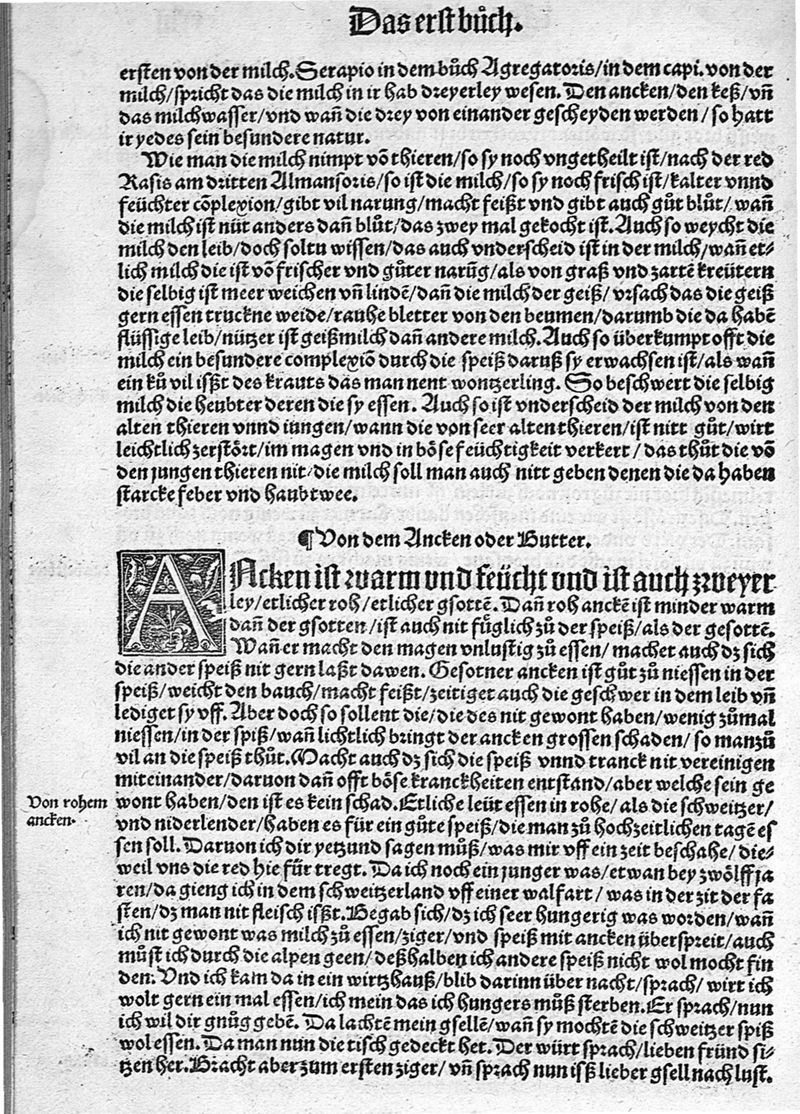 Das erst bůch.
ersten von der milch. Serapio in dem bůch Agregatoris/in dem capi. von der
milch/spricht das die milch in ir hab dreyerley wesen. Den ancken/den keß/vn̄
das milchwasser/vnd wañ die drey von einander gescheyden werden/so hatt
ir yedes sein besundere natur.
Wie man die milch nimpt vō thieren/so sy noch vngetheilt ist/nach der red
Rasis am dritten Almansoris/so ist die milch/so sy noch frisch ist/kalter vnnd
feüchter cōplexion/gibt vil narung/macht feißt vnd gibt auch gůt blůt/wañ
die milch ist nüt anders dañ blůt/das zwey mal gekocht ist. Auch so weycht die
milch den leib/doch soltu wissen/das auch vnderscheid ist in der milch/wañ et-
lich milch die ist vō frischer vnd gůter narūg/als von graß vnd zartē kreütern
die selbig ist meer weichen vn̄ lindē/dañ die milch der geiß/vrsach das die geiß
gern essen truckne weide/rauhe bletter von den beumen/darumb die da habē
flüssige leib/nützer ist geißmilch dañ andere milch. Auch so überkumpt offt die
milch ein besundere complexiō durch die speiß daruß sy erwachsen ist/als wañ
ein ků vil isßt des krauts das man nent wontzerling. So beschwert die selbig
milch die heubter deren die sy essen. Auch so ist vnderscheid der milch von den
alten thieren vnnd iungen/wann die von seer alten thieren/ist nitt gůt/wirt
leichtlich zerstört/im magen vnd in böse feüchtigkeit verkert/das thůt die vō
den jungen thieren nit/die milch soll man auch nitt geben denen die da haben
starcke feber vnd haubtwee.
¶ Von dem Ancken oder Butter.
ANcken ist warm vnd feücht vnd ist auch zweyer
ley/etlicher roh/etlicher gsottē. Dañ roh anckē ist minder warm
dañ der gsotten/ist auch nit fůglich zů der speiß/als der gesottē.
Wañ er macht den magen vnlustig zů essen/machet auch dz sich
die ander speiß nit gern laßt dawen. Gesotner ancken ist gůt zů niessen in der
speiß/weicht den bauch/macht feißt/zeitiget auch die geschwer in dem leib vn̄
lediget sy vff. Aber doch so sollent die/die des nit gewont haben/wenig zůmal
niessen/in der spiß/wañ lichtlich bringt der ancken grossen schaden/so man zů
vil an die speiß thůt. Macht auch dz sich die speiß vnnd tranck nit vereinigen
miteinander/daruon dañ offt böse kranckheiten entstand/aber welche sein ge
wont haben/den ist es kein schad. Etliche leüt essen in rohe/als die schweitzer/
Von rohem
ancken.
vnd niderlender/haben es für ein gůte speiß/die man zů hochzeitlichen tagē es
sen soll. Daruon ich dir yetzund sagen můß/was mir vff ein zeit beschahe/die-
weil vns die red hie für tregt. Da ich noch ein junger was/etwan bey zwölff ja
ren/da gieng ich in dem schweitzerland vff einer walfart/was in der zit der fa
sten/dz man nit fleisch isßt. Begab sich/dz ich seer hungerig was worden/wañ
ich nit gewont was milch zů essen/ziger/vnd speiß mit ancken überspreit/auch
můst ich durch die alpen geen/deßhalben ich andere speiß nicht wol mocht fin
den. Vnd ich kam da in ein wirtzhauß/blib darinn über nacht/sprach/wirt ich
wolt gern ein mal essen/ich mein das ich hungers můß sterben. Er sprach/nun
ich wil dir gnůg gebē. Da lachtē mein gsellē/wañ sy mochtē die schweitzer spiß
wol essen. Da man nun die tisch gedeckt het. Der würt sprach/lieben fründ si-
tzen her. Bracht aber zum ersten ziger/vn̄ sprach nun isß lieber gsell nach lust.